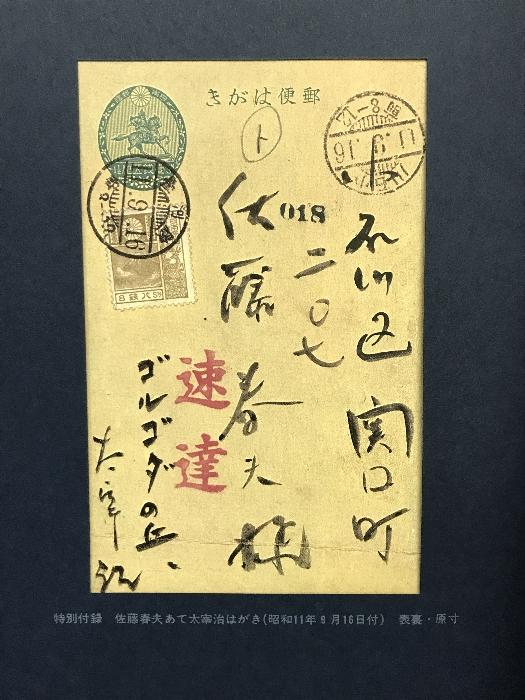 郵便はがき
ト
11.9.16
018
小石川区関口町
二〇七
佐藤春夫様
速達
ゴルゴダの丘、
太宰治
11.9.16
特別付録　佐藤春夫あて太宰治はがき(昭和11年9月16日付)　表裏・原寸